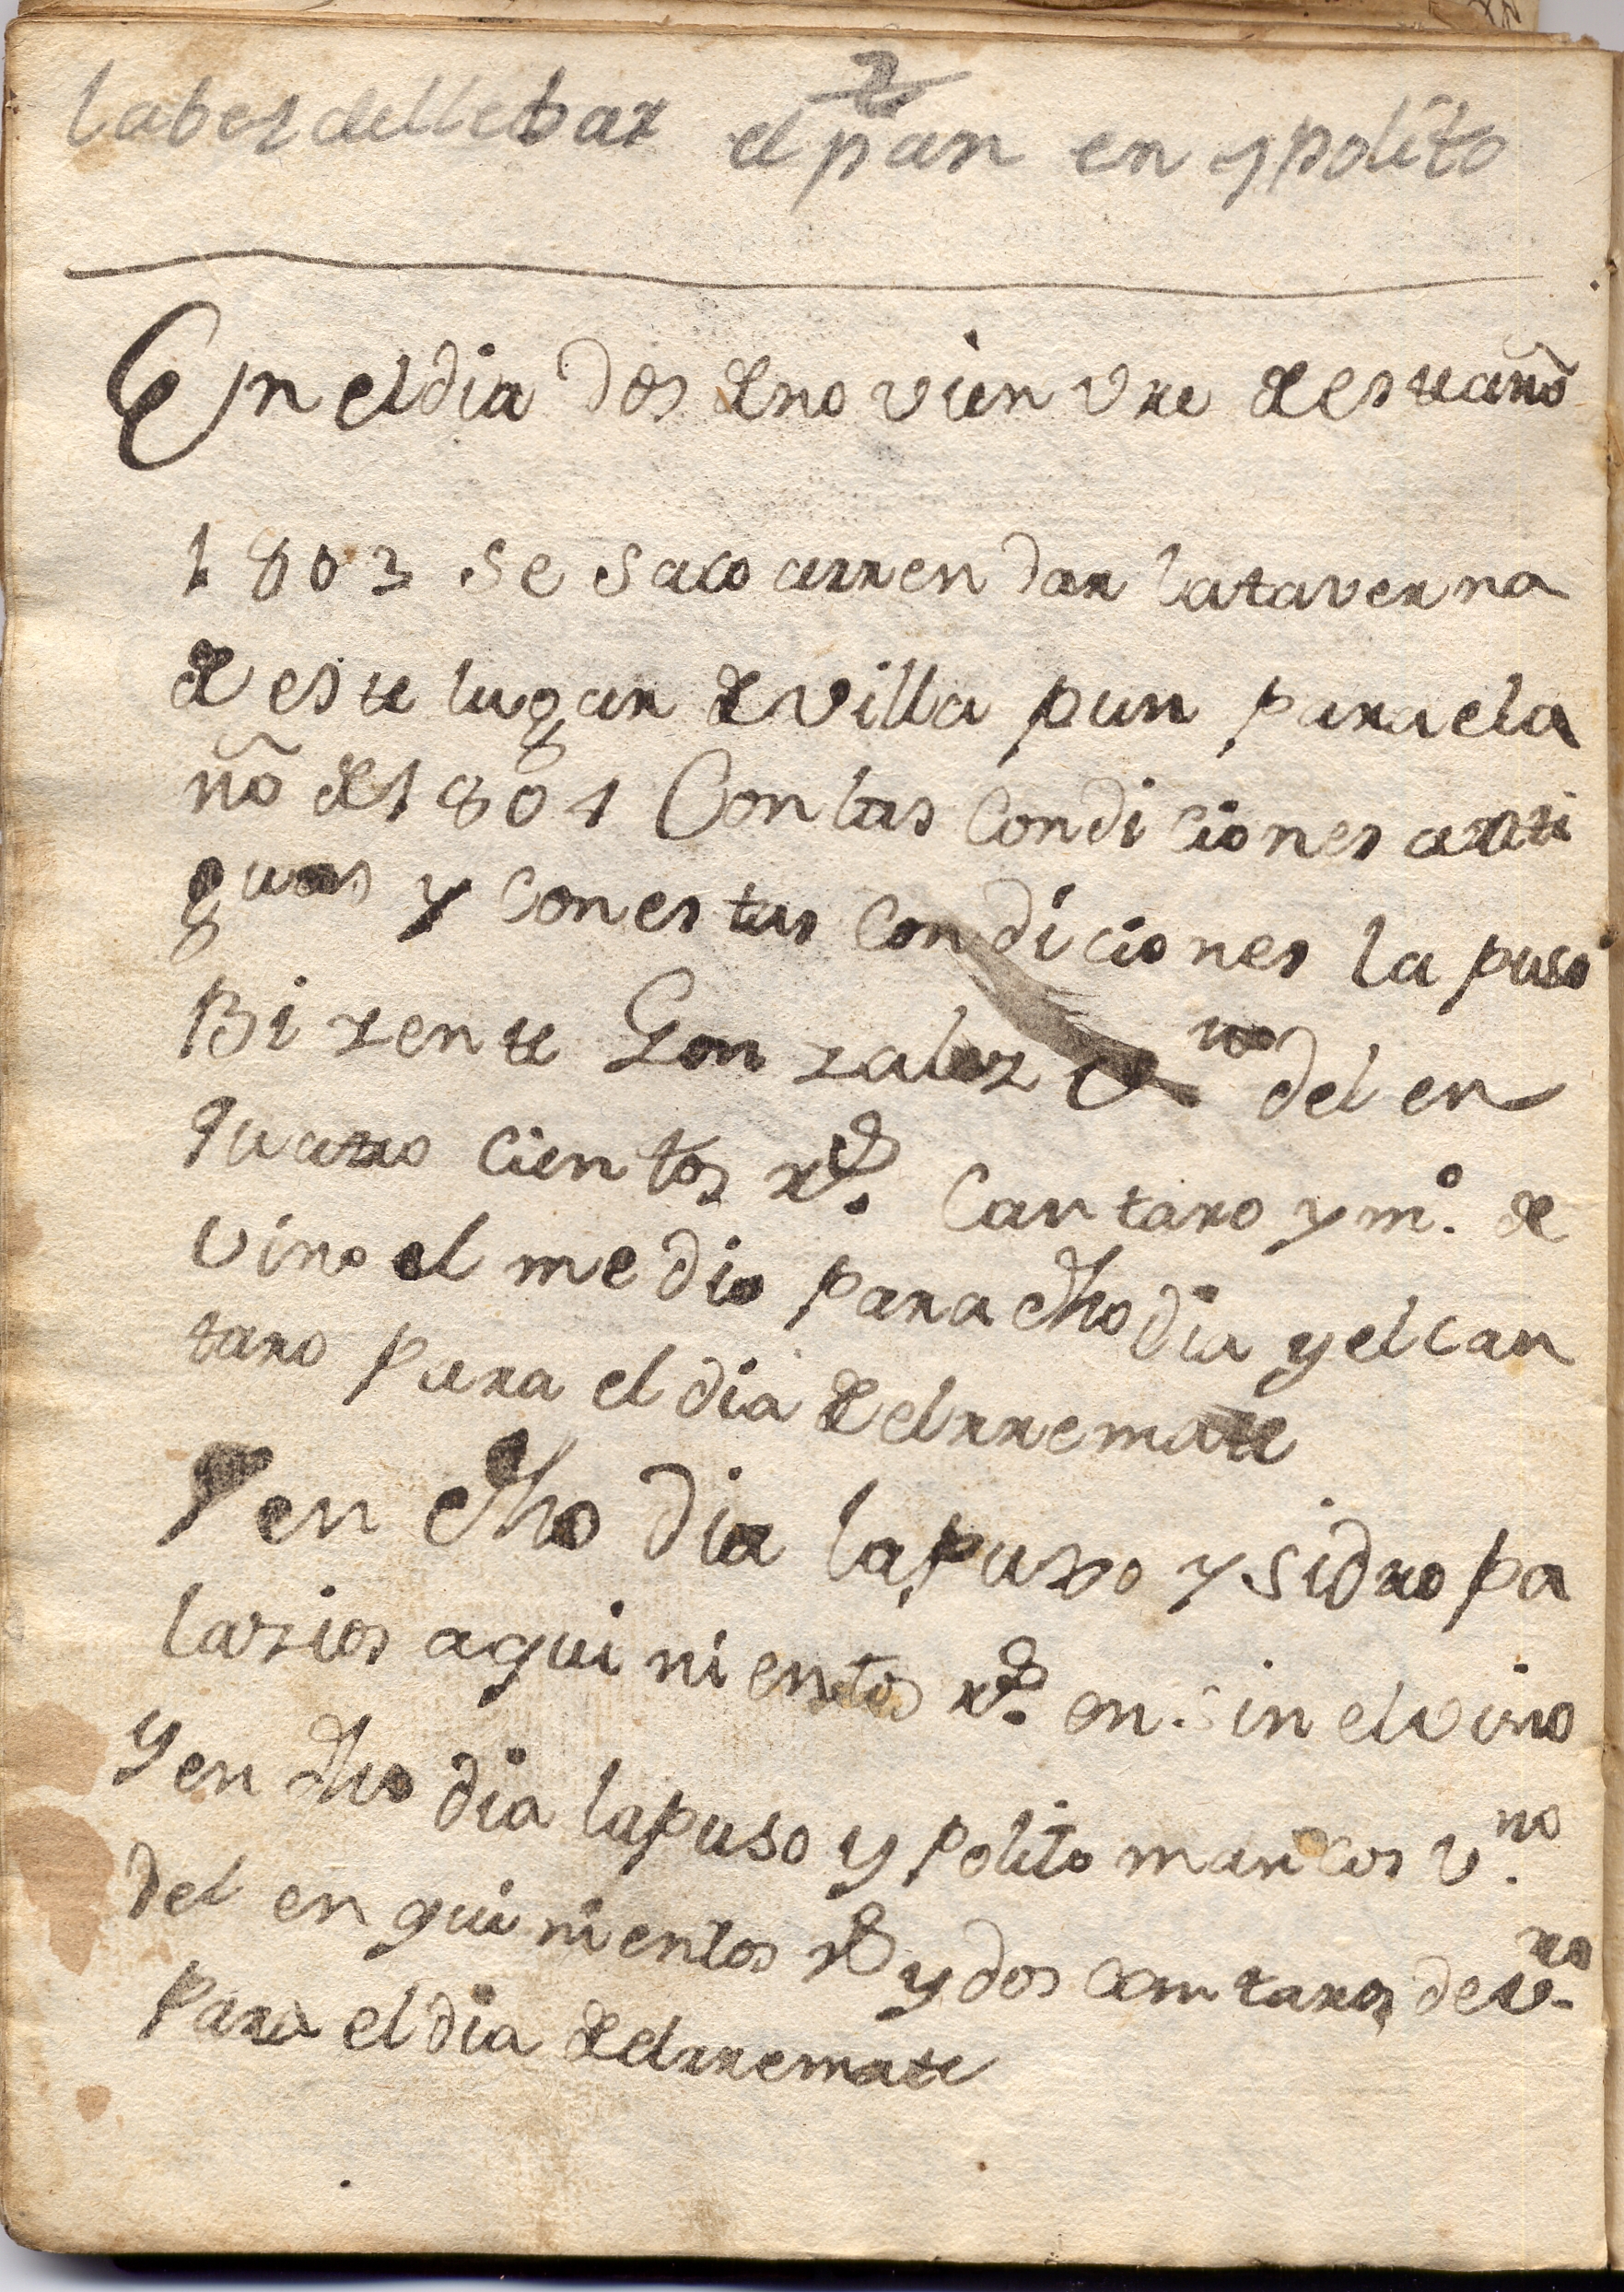 2
la bez del lebar el pan en ypolito
En el dia dos de novienvre de este año
1803 se saco arrendar la taverna
de este lugar de villa pun para el a
ño de 1804 Con las Condiciones anti
guas y con estas condiciones la puso
Bizente Gonzalez vno del en
quatro cientos rs. Cantaro y mo. de
vino el medio para dho dia y el can
taro para el dia de el rremate
Y en dho dia la puso ysidro pa
lazios a quinientos rs. en. sin el vino
y en dho dia la puso ypolito marcos v.no
del en quinientos rs y dos cantaros de v.no
para el dia de el rremate